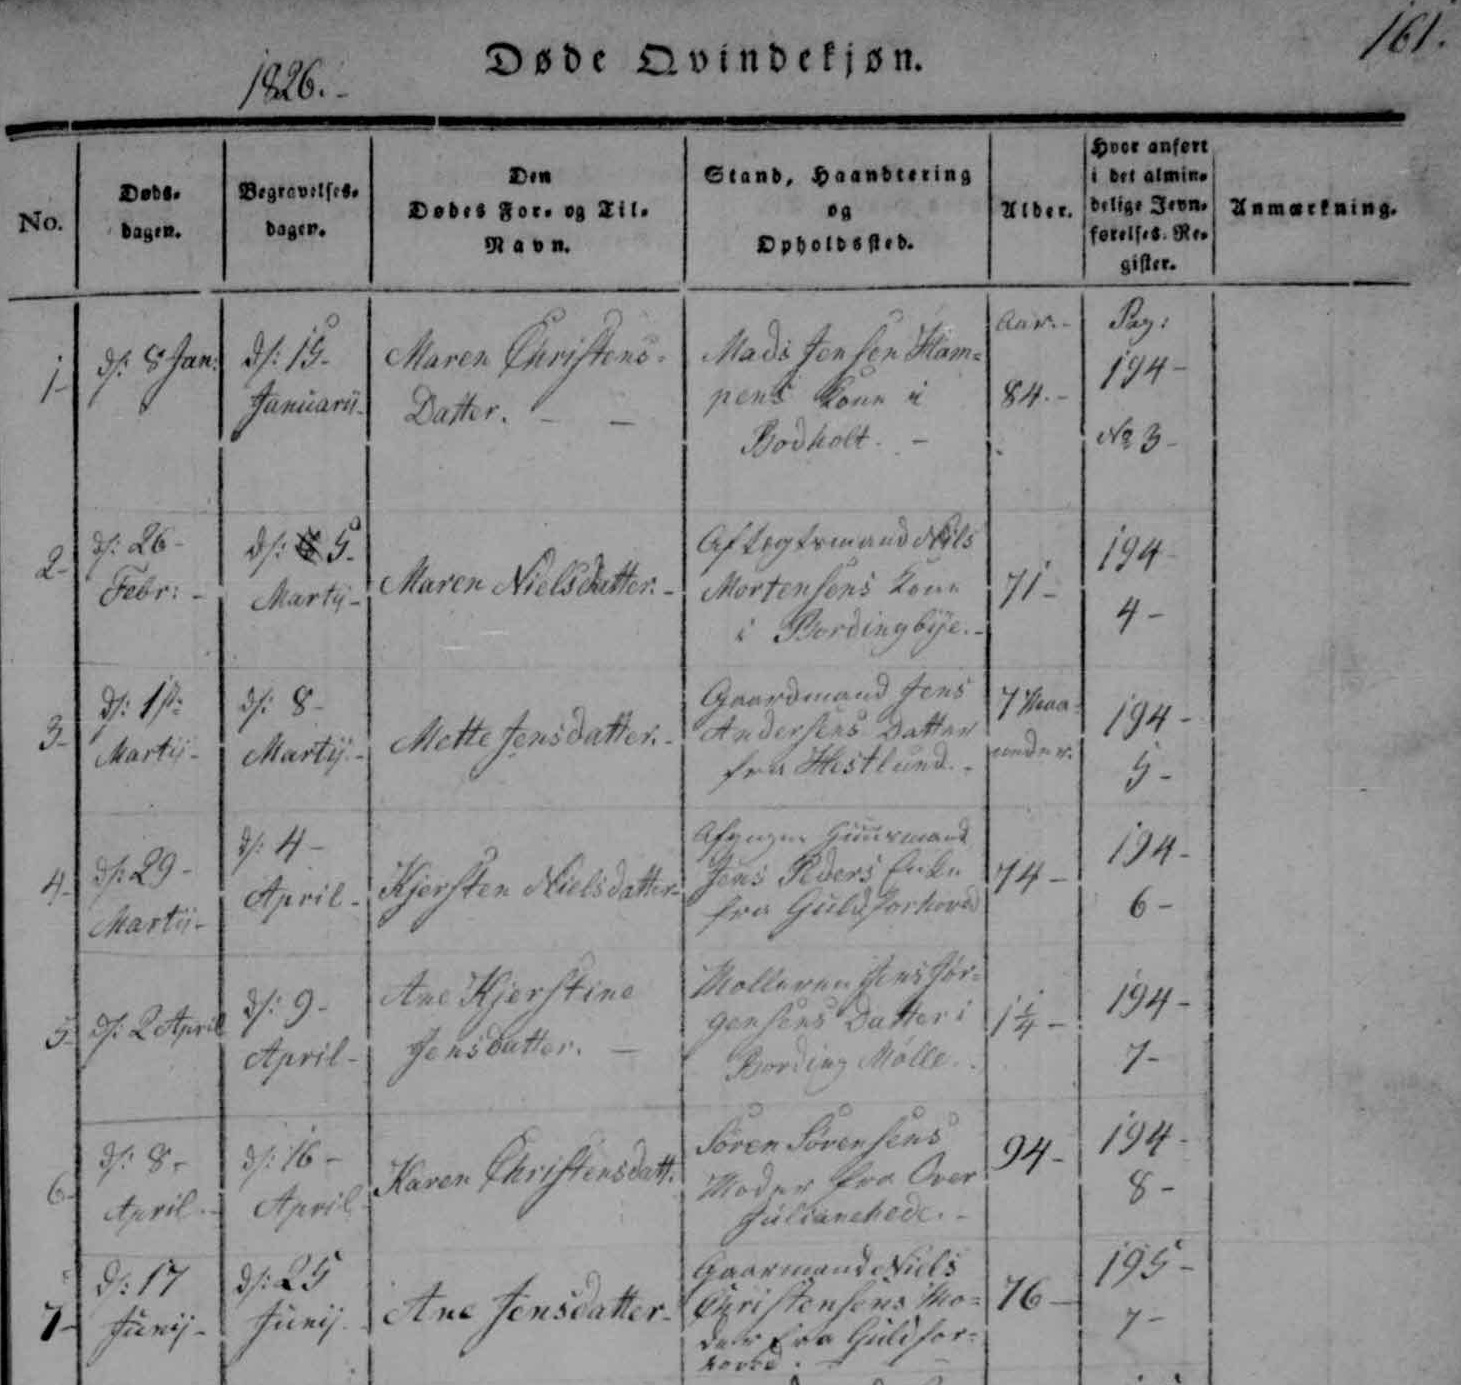 161.
1826.-
Døde Qvindekjøn.
No.
Døds-
dagen.
Begravelses-
dagen.
Den
Dødes For- og Til-
Navn.
Stand, Haandtering
og
Opholdssted.
Alder.
Hvor anført
i det almin-
delige Jevn-
førelses-Re-
gister.
Anmærkning.
1-
d: 8 Jan:
d: 15-
Januarii-
Maren Christens-
Datter. - -
Mads Jensen Ham-
pens Kone i
Bodholt. -
Aar.-
84.-
Pag:
194-
No 3-
2-
d: 26-
Febr: -
d: 5-
Martii-
Maren Nielsdatter.-
Aftægtsmand Niels
Mortensens Kone
i Bordingbÿe.-
71-
194-
4-
3-
d: 1ste
Martii-
d: 8-
Martii.-
Mette Jensdatter.-
Gaardmand Jens
Andersens Datter
fra Hestlund.-
7 Maa-
neder.
194-
5-
4-
d: 29-
Martii-
d: 4-
April-
Kjersten Nielsdatter-
Afgangne Huusmand
Jens Peders Enke
fra Guldforhoved
74-
194-
6-
5-
d: 2 April
d: 9-
April-
Ane Kjerstine
Jensdatter. -
Mølleren Jens Jør-
gensens Datter i
Bording Mølle.-
1 1/4-
194-
7-
6-
d: 8-
April.-
d: 16-
April-
Karen Christensdatt.
Søren Sørensens
Moder fra Over
Julianehede.-
94-
194-
8-
7-
d: 17
Junij-
d: 25
Junij-
Ane Jensdatter-
Gaarmand Niels
Christensens Mo-
der fra Guldfor-
hoved. - -
76-
195-
7-